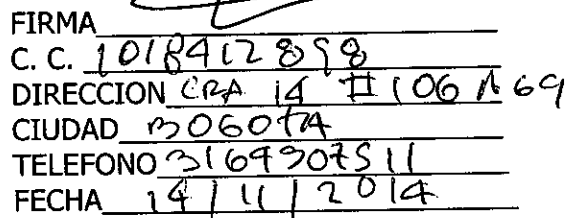 FIRMA
C. C. 1018412898
DIRECCION CRA 14 # 106 A 69
CIUDAD BOGOTA
TELEFONO 3169307511
FECHA 14/11/2014